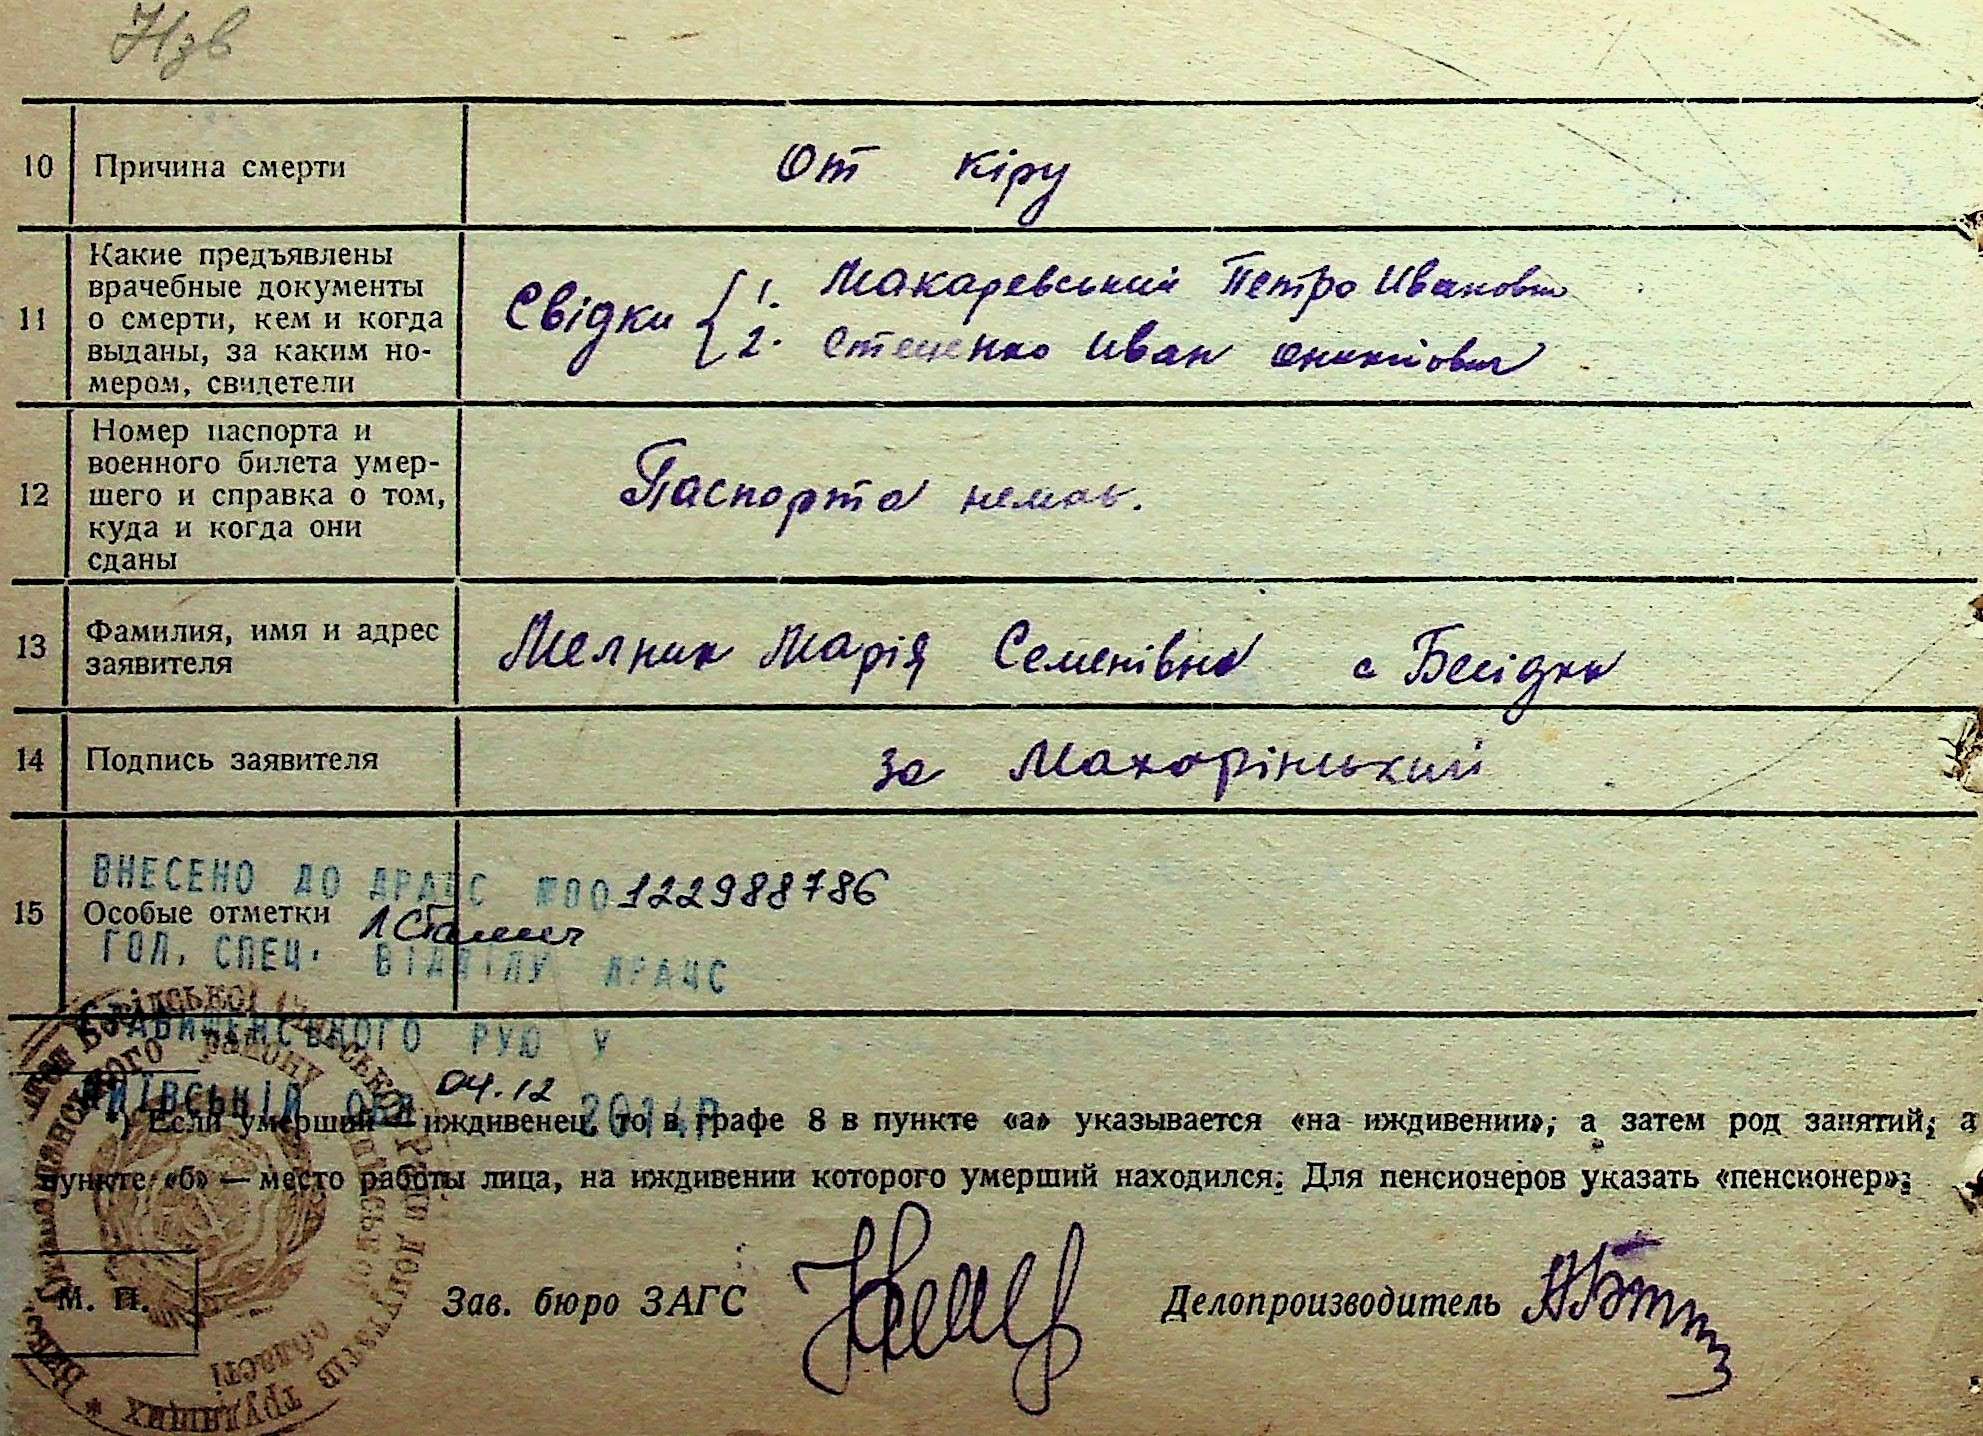 Нзв
10 Причина смерти От кіру
11 Какие предъявлены
врачебные документы
о смерти, кем и когда
выданы, за каким но-
мером, свидетели
Свідки 1. Макаревський Петро Иванович
2. Стеценко Иван
12 Номер паспорта и
военного билета умер-
шего и справка о том,
куда и когда они
сданы
Паспорта немає.
13 Фамилия, имя и адрес
заявителя
Мелник Марія Семенівна с Бесідка
14 Подпись заявителя за Махорінський
ВНЕСЕНО ДО ДРАЦС №00122988786
15 Особые отметки
ГОЛ. СПЕЦ. ВІДДІЛУ ДРАЦС
СТАВИЩЕНСЬКОГО РУЮ У
КИЇВСЬКІЙ ОБЛ 04.12 2014Р
*) Если умерший — иждивенец, то в графе 8 в пункте «а» указывается «на иждивении»; а затем род занятий; а
пункте «б» — место работы лица, на иждивении которого умерший находился. Для пенсионеров указать «пенсионер».
М. П. Зав. бюро ЗАГС Делопроизводитель
району
трудящих
області